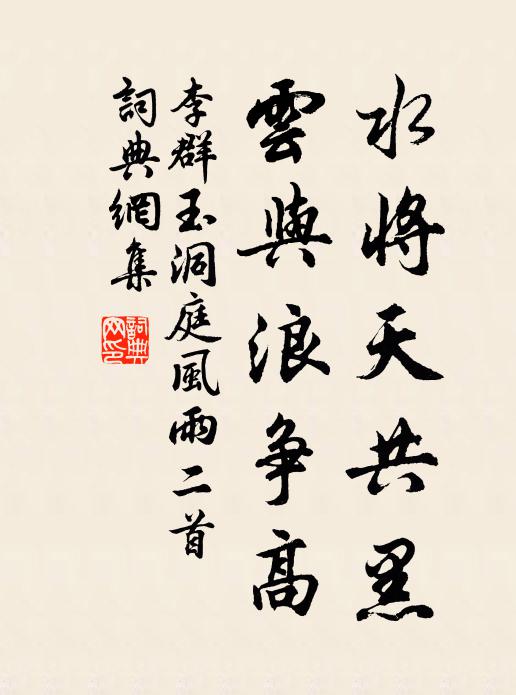 水將天共黑
雲與浪争高
李群玉洞庭風雨二首
詞典網集
詞典網印